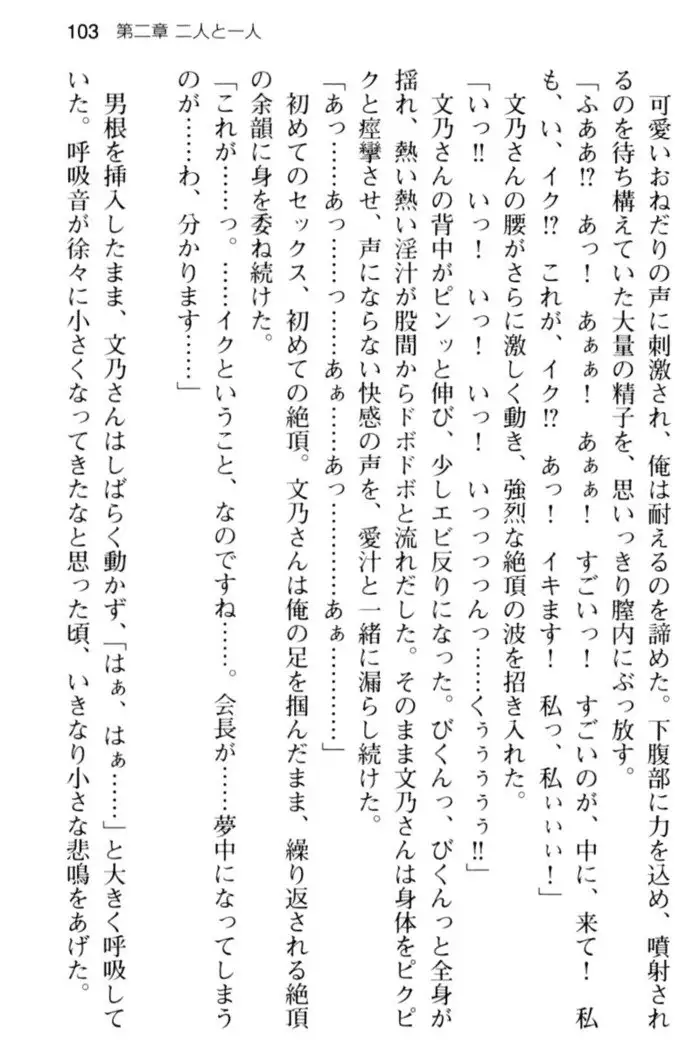 103 第二章 二人と一人
可愛いおねだりの声に刺激され、俺は耐えるのを諦めた。下腹部に力を込め、噴射され
るのを待ち構えていた大量の精子を、思いっきり膣内にぶっ放す。
「ふああ!? あっ! あぁぁ! あぁぁ! すごいっ! すごいのが、中に、来て! 私
も、い、イク!? これが、イク!? あっ! イキます! 私っ、私ぃぃぃ!」
文乃さんの腰がさらに激しく動き、強烈な絶頂の波を招き入れた。
「いっ!! いっ! いっ! いっ! いっっっっんっ……くぅぅぅぅぅ!!」
文乃さんの背中がピンッと伸び、少しエビ反りになった。びくんっ、びくんっと全身が
揺れ、熱い熱い淫汁が股間からドボドボと流れだした。そのまま文乃さんは身体をピクピ
クと痙攣させ、声にならない快感の声を、愛汁と一緒に漏らし続けた。
「あっ……あっ……っ……あぁ……あっ…………あぁ…………」
初めてのセックス、初めての絶頂。文乃さんは俺の足を掴んだまま、繰り返される絶頂
の余韻に身を委ね続けた。
「これが……っ。……イクということ、なのですね……。会長が……夢中になってしまう
のが……わ、分かります……」
男根を挿入したまま、文乃さんはしばらく動かず、「はぁ、はぁ……」と大きく呼吸して
いた。呼吸音が徐々に小さくなってきたなと思った頃、いきなり小さな悲鳴をあげた。